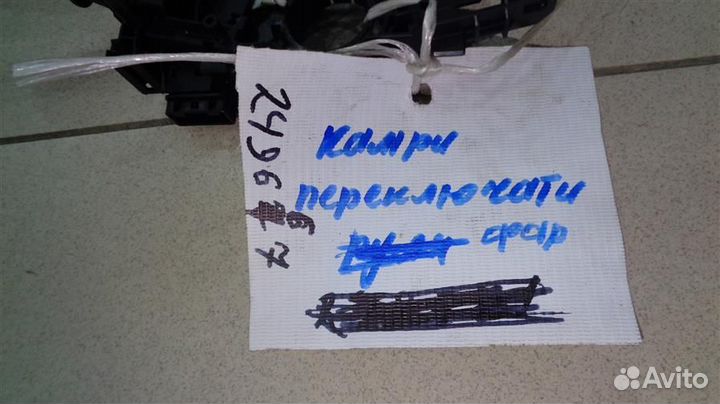 Камри
переключати
фар
Avito